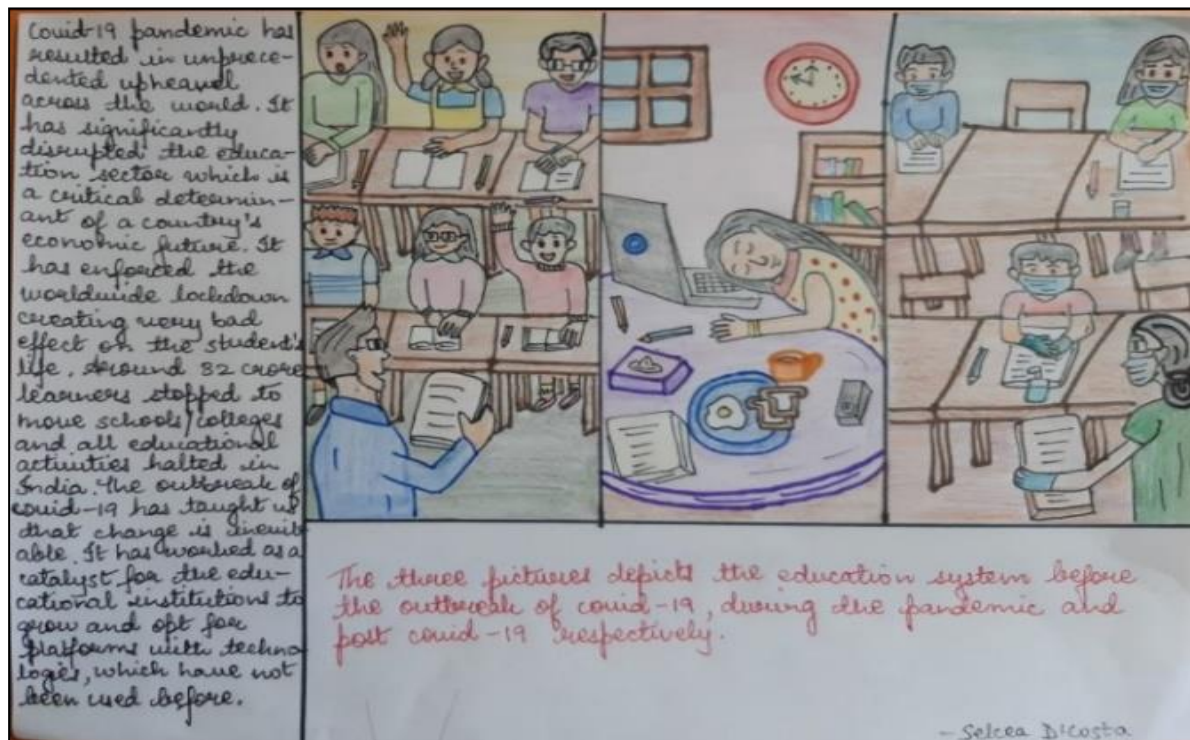 Covid-19 pandemic has
resulted in unprece-
dented upheavel
across the world. It
has significantly
disrupted the educa-
tion sector which is
a critical determin-
ant of a country's
economic future. It
has enforced the
worldwide lockdown
creating very bad
effect on the student's
life. Around 32 crore
learners stopped to
move schools/colleges
and all educational
activities halted in
India. The outbreak of
covid-19 has taught us
that change is inevit
able. It has worked as a
catalyst for the edu-
cational institutions to
grow and opt for
platforms with techno
logies, which have not
been used before.
The three pictures depicts the education system before
the outbreak of covid-19, during the pandemic and
post covid-19 respectively.
- Selcea D'Costa